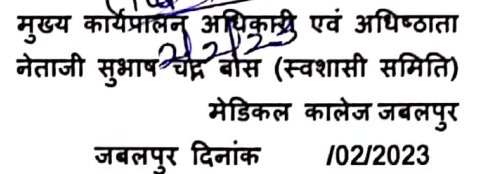 मुख्य कार्यपालन अधिकारी एवं अधिष्ठाता
नेताजी सुभाष चंद्र बोस (स्वशासी समिति)
मेडिकल कालेज जबलपुर
जबलपुर दिनांक /02/2023